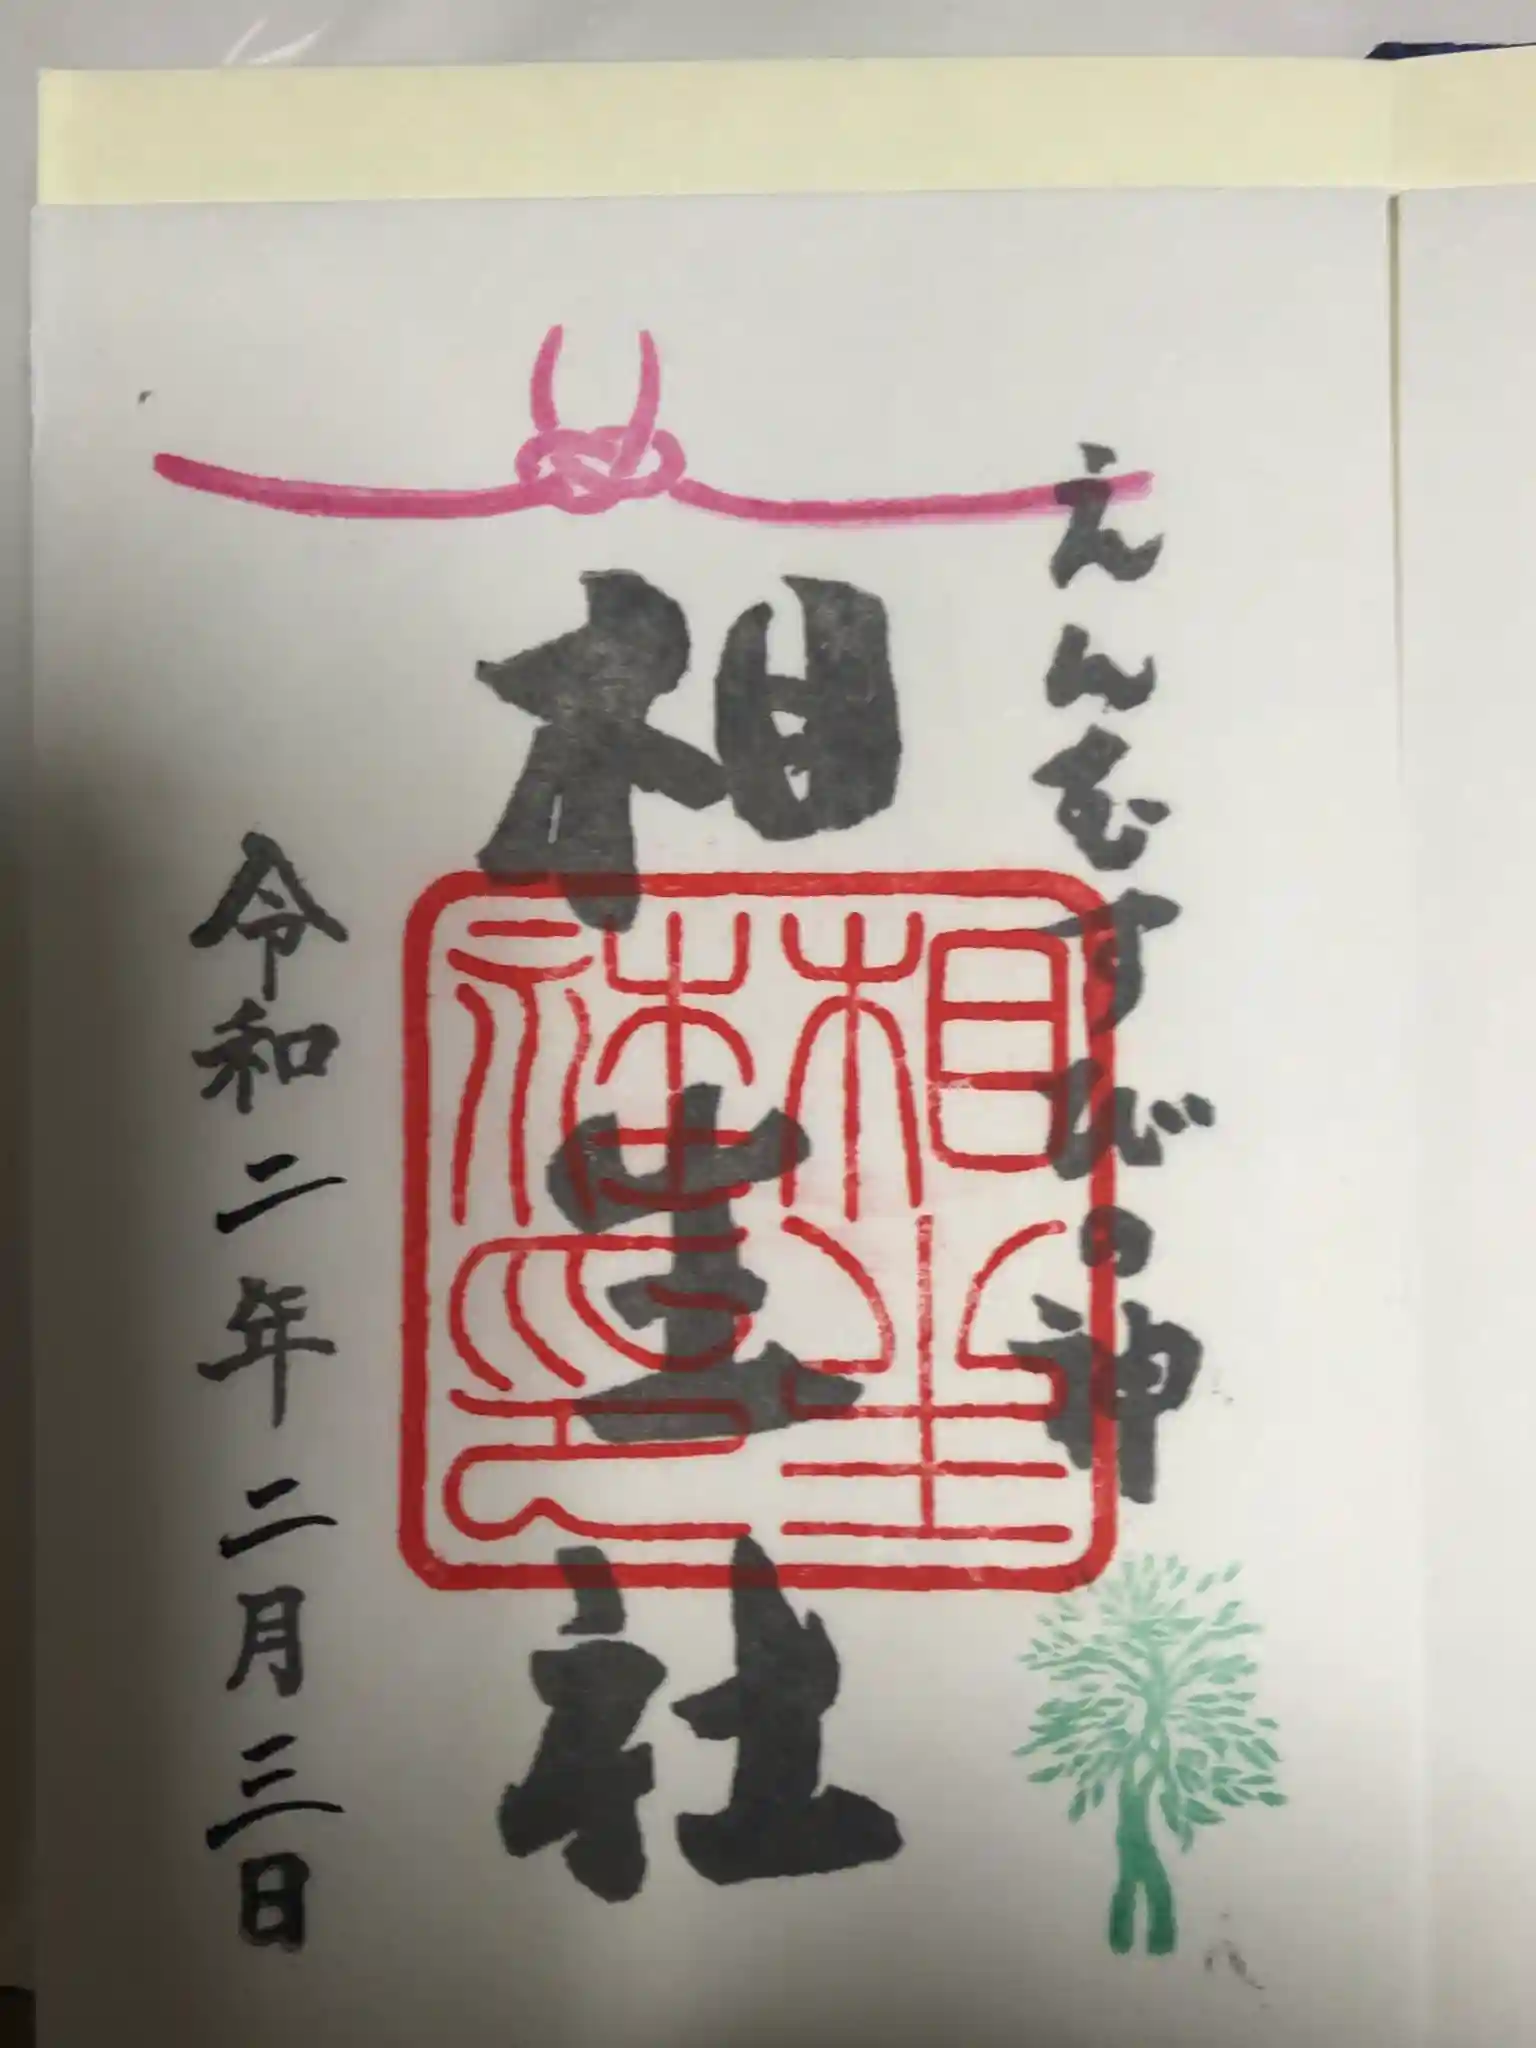 えんむすびの神
相生社
相生社神印
令和二年二月三日